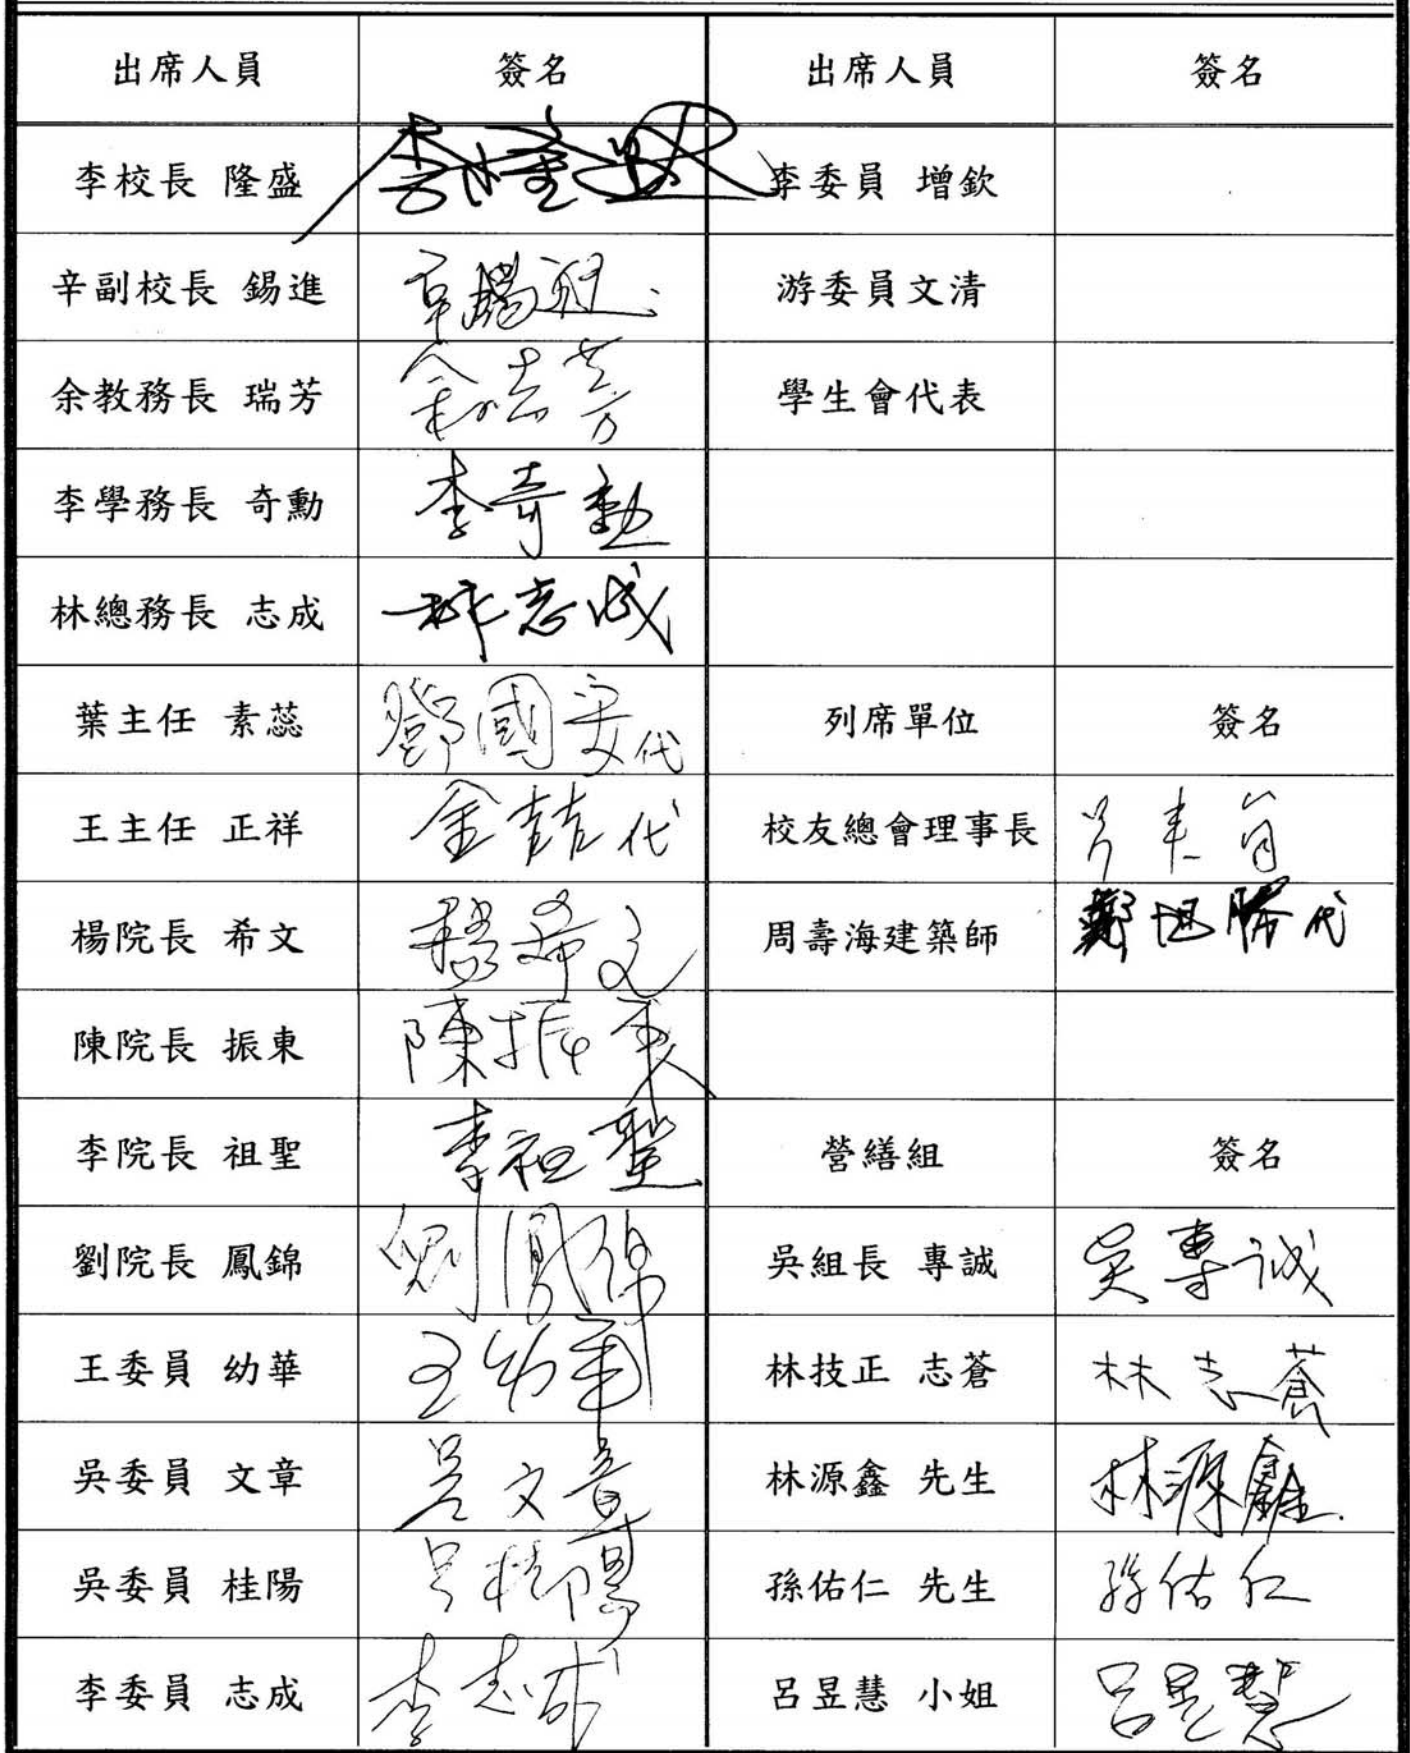 出席人員 簽名 出席人員 簽名
李校長 隆盛 李隆盛 李委員 增欽
辛副校長 錫進 辛錫進 游委員文清
余教務長 瑞芳 余瑞芳 學生會代表
李學務長 奇勳 李奇勳
林總務長 志成 林志成
葉主任 素蕊 鄧國安代 列席單位 簽名
王主任 正祥 代 校友總會理事長
楊院長 希文 楊希文 周壽海建築師 鄭旭勝代
陳院長 振東 陳振東
李院長 祖聖 李祖聖 營繕組 簽名
劉院長 鳳錦 劉鳳錦 吳組長 專誠 吳專誠
王委員 幼華 王幼華 林技正 志蒼 林志蒼
吳委員 文章 吳文章 林源鑫 先生 林源鑫
吳委員 桂陽 吳桂陽 孫佑仁 先生 孫佑仁
李委員 志成 李志成 呂昱慧 小姐 呂昱慧